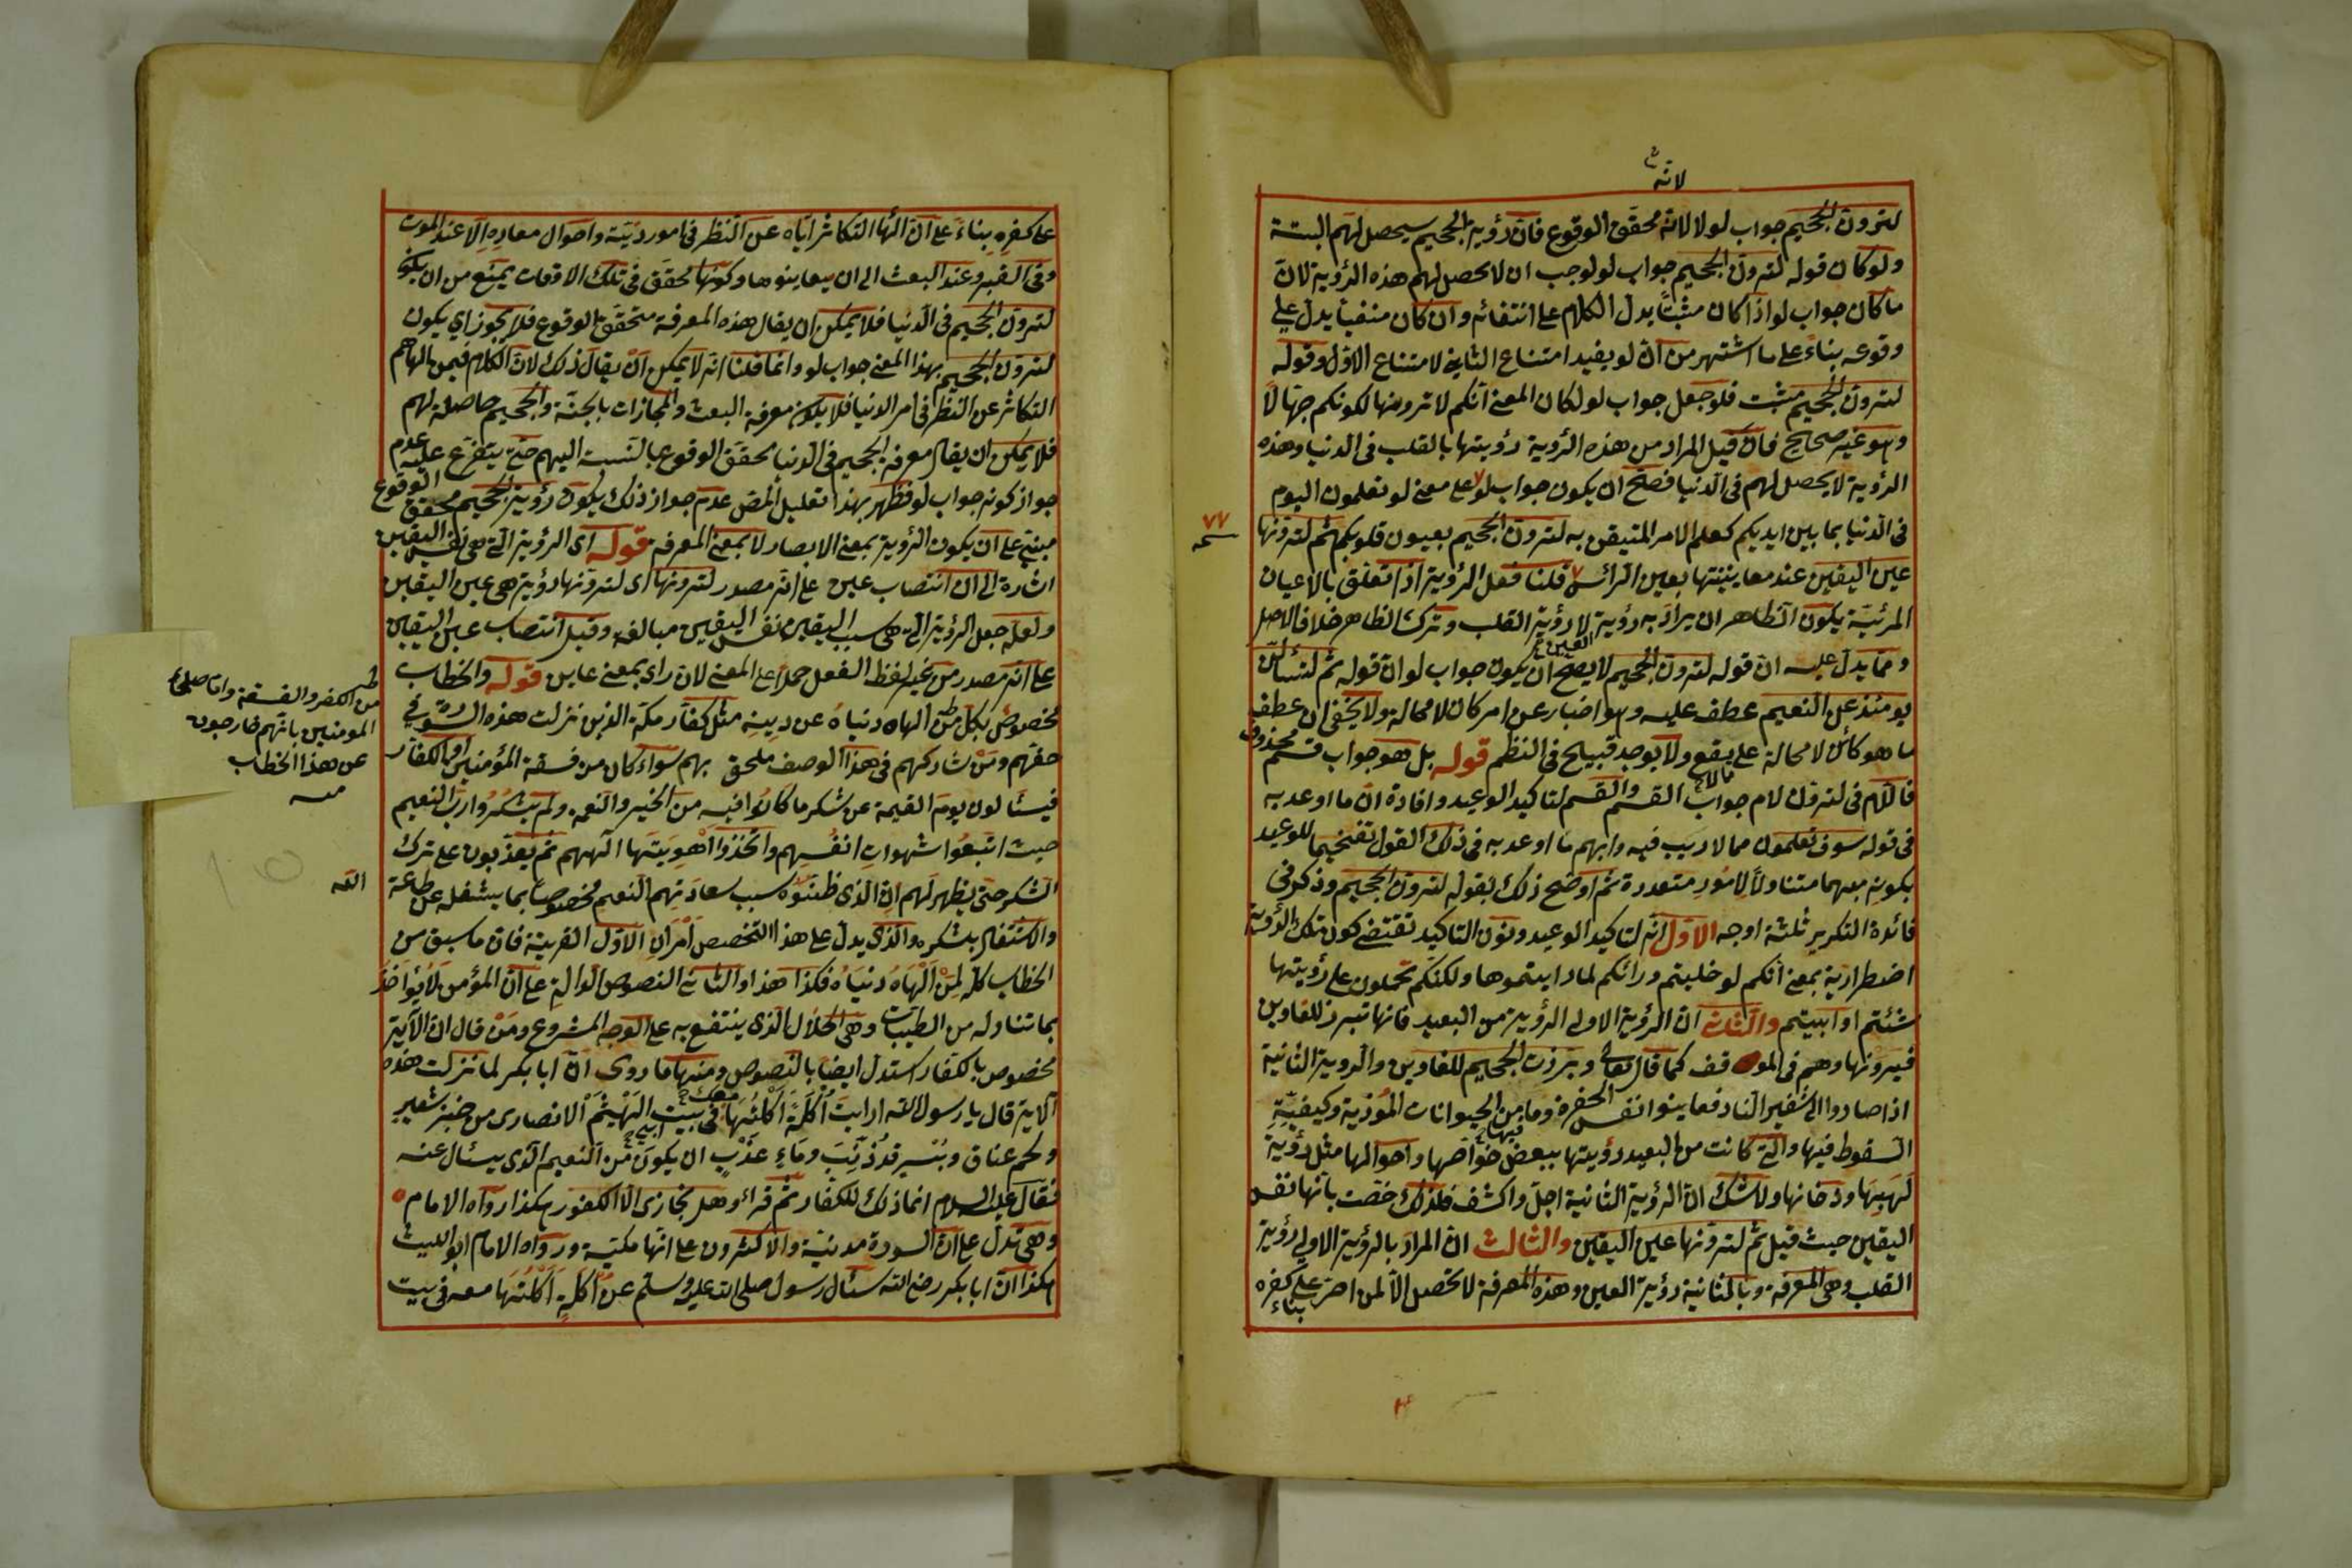 لانه
لترون الجحيم جواب لو لا لانه محقق الوقوع فان رؤية الجحيم سيحصل لهم البتة
ولو كان قوله لترون الجحيم جواب لو لوجب ان لا يحصل لهم هذه الرؤية لان
ما كان جواب لو اذا كان مثبتا يدل الكلام على انتفائه وان كان منفيا يدل على
وقوعه بناء على ما اشتهر من ان لو يفيد امتناع الثاني لامتناع الاول وقوله
لترون الجحيم مثبت فلو جعل جواب لو لكان المعنى انكم لا ترونها لكونكم جهالا
وهو غير صحيح فان قيل المراد من هذه الرؤية رؤيتها بالقلب في الدنيا وهذه
الرؤية لا يحصل لهم في الدنيا فصح ان يكون جواب لو على معنى لو تعلمون اليوم
في الدنيا بما بين ايديكم كعلم الامر المتيقن به لترون الجحيم بعيون قلوبكم ثم لترونها
٧٧
عين اليقين عند معاينتها بعين الرأس قلنا فعل الرؤية اذا تعلق بالاعيان
المرئية يكون الظاهر ان يراد به رؤية العين لا رؤية القلب وترك الظاهر خلاف الاصل
ومما يدل عليه ان قوله لترون الجحيم لا يصح ان يكون جواب لو ان قوله ثم لتسألن
يومئذ عن النعيم عطف عليه وهو اخبار عن امر كان لا محالة ولا يخفى ان عطف
ما هو كائن لا محالة على يقع ولا يوجد قبيح في النظم قوله بل هو جواب قسم محذوف
فاللام في لترون لام جواب القسم والقسم لتاكيد الوعيد وافادة ان ما اوعد به
في قوله سوف تعلمون مما لا ريب فيه وابهم ما اوعد به في ذلك القول تفخيما للوعيد
بكونه مبهما متناولا لامور متعددة ثم اوضح ذلك بقوله لترون الجحيم وذكر في
فائدة التكرير ثلثة اوجه الاول انه لتاكيد الوعيد ونون التاكيد تقتضي كون تلك الرؤية
اضطرارية بمعنى انكم لو خليتم ورائكم لما رايتموها ولكنكم تحملون على رؤيتها
شئتم او ابيتم والثاني ان الرؤية الاولى الرؤية من البعيد فانها تبرز للغاوين
فيرونها وهم في الموقف كما قال تعالى وبرزت الجحيم للغاوين والرؤية الثانية
اذا صاروا الى شفير النار فعاينوا نفس الحفرة وما فيها من الحيوانات الموذية وكيفية
السقوط فيها والتي كانت من البعيد رؤيتها ببعض خواصها واحوالها مثل رؤية
لهبها ودخانها ولا شك ان الرؤية الثانية اجل واكشف فلذلك خصت بانها نفس
اليقين حيث قيل ثم لترونها عين اليقين والثالث ان المراد بالرؤية الاولى رؤية
القلب وهي المعرفة وبالثانية رؤية العين وهذه المعرفة لا تحصل الا لمن اصر على كفره
بناء
على كفره بناء على ان الهاء التكاثر اياه عن النظر في امور دينه واحوال معاده الا عند الموت
وفي القبر وعند البعث الى ان يعاينوها وكونها محقق في تلك الاوقات يمنع من ان يكون
لترون الجحيم في الدنيا فلا يمكن ان يقال هذه المعرفة متحقق الوقوع فلا يجوز اي يكون
لترون الجحيم بهذا المعنى جواب لو وانما قلنا انه لا يمكن ان يقال ذلك لان الكلام فيمن الهاهم
التكاثر عن النظر في امر الدنيا فلا يكون معرفة البعث والمجازات بالجنة والجحيم حاصلة لهم
فلا يمكن ان يقال معرفة الجحيم في الدنيا محقق الوقوع بالنسبة اليهم حتى يتفرع عليه عدم
جواز كونه جواب لو فظهر بهذا تعليل المص عدم جواز ذلك بكون رؤية الجحيم محقق الوقوع
مبني على ان يكون الرؤية بمعنى الابصار لا بمعنى المعرفة قوله اي الرؤية التي هي نفس اليقين
اشارة الى ان انتصاب عين على انه مصدر لترونها اي لترونها رؤية هي عين اليقين
ولعله جعل الرؤية التي هي سبب اليقين نفس اليقين مبالغة وقيل انتصاب عين اليقين
على انه مصدر من غير لفظ الفعل حملا على المعنى لان راى بمعنى عاين قوله والخطاب
مخصوص بكل من الهاه دنياه عن دينه مثل كفار مكة الذين نزلت هذه السورة في
حقهم ومن شاركهم في هذا الوصف ملحق بهم سواء كان من فسقة المؤمنين او الكفار
من الكفر والفسقة واما صلحاء
المؤمنين بانهم خارجون
عن هذا الخطاب
منه
فيسألون يوم القيمة عن شكر ما كانوا فيه من الخير والنعمة ولم يشكروا رب النعيم
حيث اتبعوا شهوات انفسهم واتخذوا اهويتها الههم ثم يعذبون على ترك
الشكر حتى يظهر لهم ان الذي ظنوه سبب سعادتهم النعيم مخصوص بما يشغله عن طاعة
الله
والاشتغال بشكره والذي يدل على هذا التخصيص امران الاول القرينة فان ما سبق من
الخطاب كله لمن الهاه دنياه فكذا هذا والثاني النصوص الدالة على ان المؤمن لا يؤاخذ
بما تناوله من الطيبات وهي الحلال الذي ينتفع به على الوجه المشروع ومن قال ان الآية
مخصوص بالكفار استدل ايضا بالنصوص ومنها ما روي ان ابا بكر لما نزلت هذه
الآية قال يا رسول الله ارايت اكلة اكلتها معك في بيت ابي الهيثم الانصاري من خبز شعير
ولحم عناق وبسر قد ذنب وماء عذب ان يكون من النعيم الذي يسئال عنه
فقال عليه السلام انما ذلك للكفار ثم قرا وهل يجازى الا الكفور هكذا رواه الامام
وهي تدل على ان السورة مدنية والاكثرون على انها مكية ورواه الامام ابو الليث
هكذا ان ابا بكر رضي الله سئال رسول صلى الله عليه وسلم عن اكلة اكلتها معه في بيت